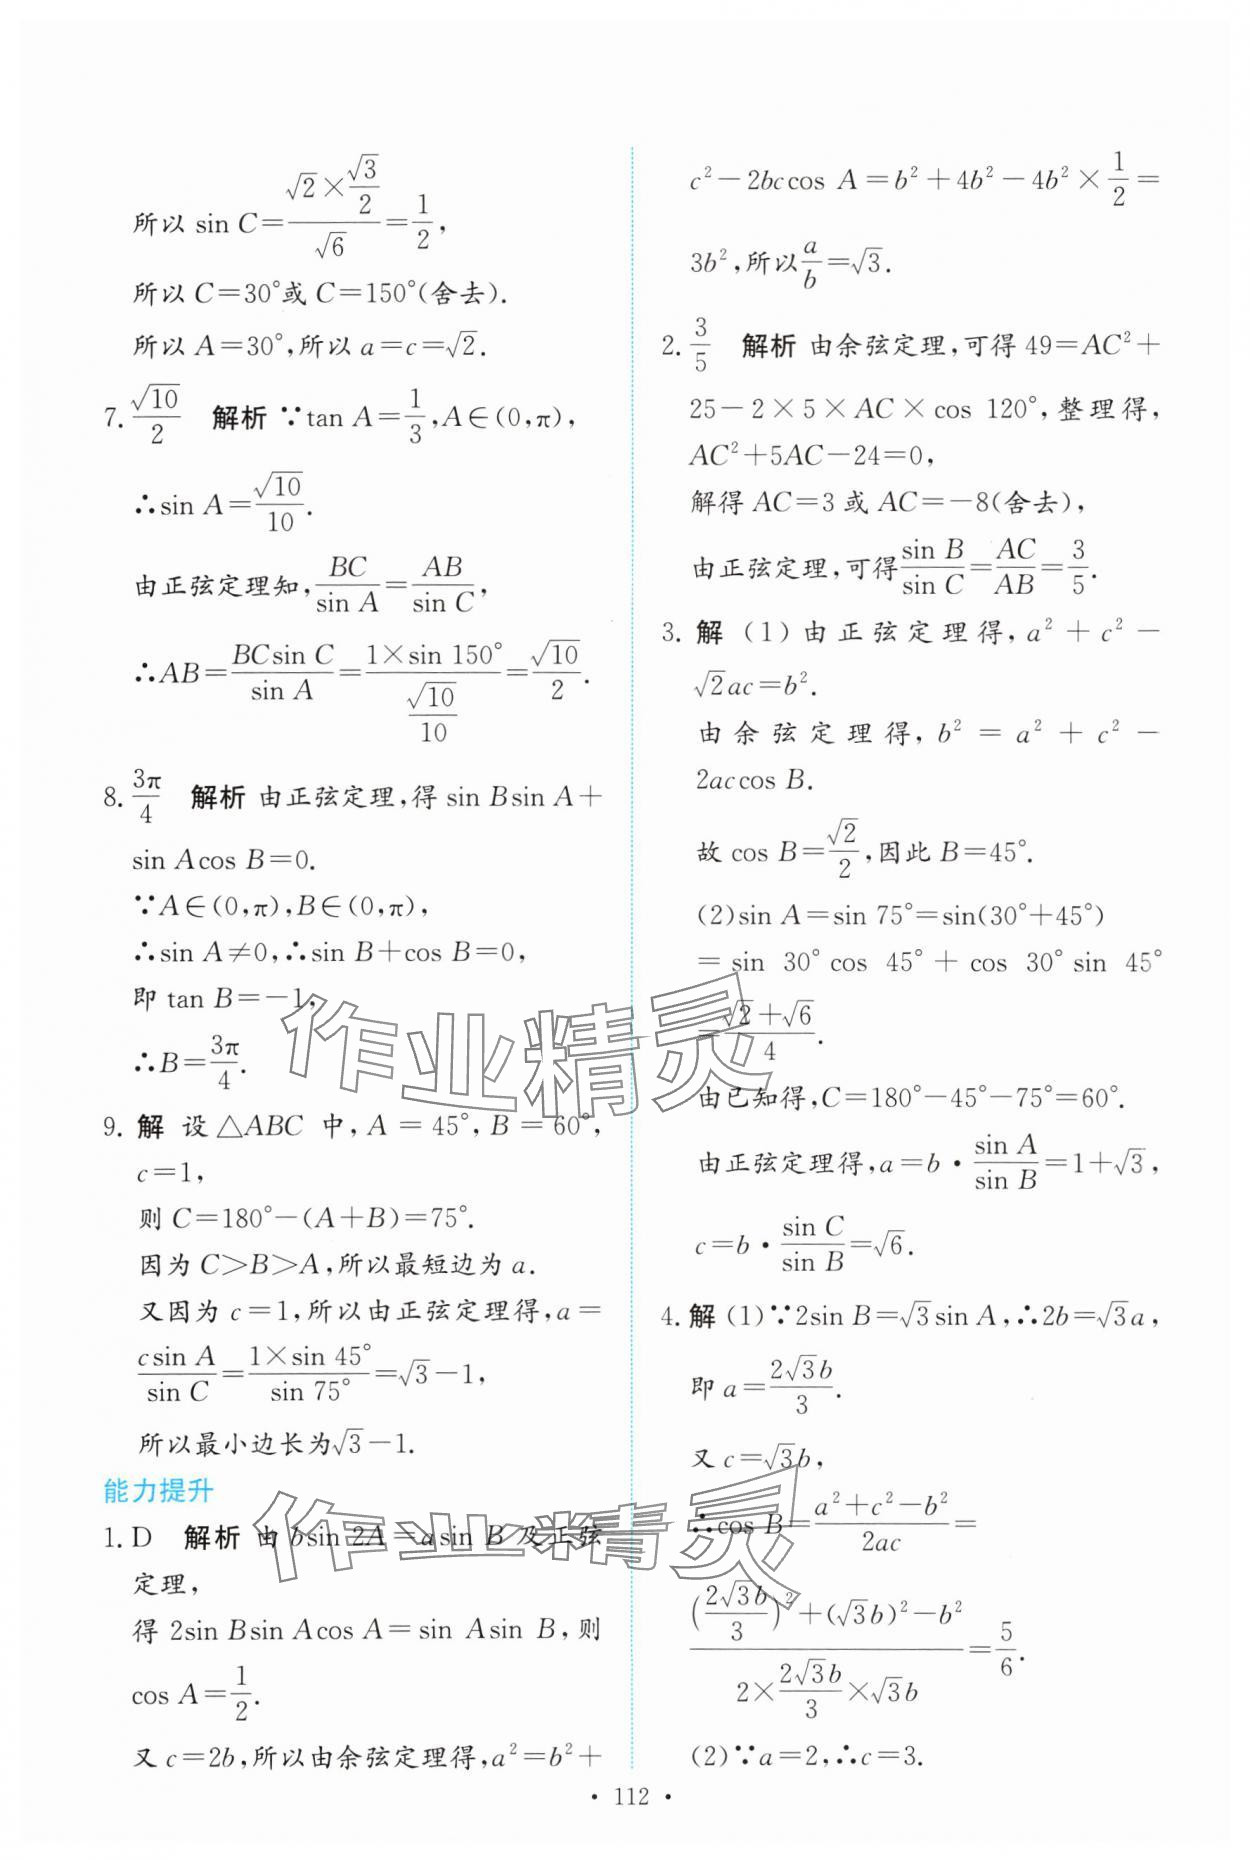 所以 sin C=(√2×√3/2)/√6=1/2,
所以 C=30°或 C=150°(舍去).
所以 A=30°,所以 a=c=√2.
7. √10/2 解析 ∵tan A=1/3,A∈(0,π),
∴sin A=√10/10.
由正弦定理知,BC/sin A=AB/sin C,
∴AB=BCsin C/sin A=(1×sin 150°)/(√10/10)=√10/2.
8. 3π/4 解析 由正弦定理,得 sin Bsin A+
sin Acos B=0.
∵A∈(0,π),B∈(0,π),
∴sin A≠0,∴sin B+cos B=0,
即 tan B=-1,
∴B=3π/4.
9. 解 设 △ABC 中,A=45°,B=60°,
c=1,
则 C=180°-(A+B)=75°.
因为 C>B>A,所以最短边为 a.
又因为 c=1,所以由正弦定理得,a=
csin A/sin C=(1×sin 45°)/sin 75°=√3-1,
所以最小边长为√3-1.
能力提升
1. D 解析 由 bsin 2A=asin B 及正弦
定理,
得 2sin Bsin Acos A=sin Asin B,则
cos A=1/2.
又 c=2b,所以由余弦定理得,a²=b²+
c²-2bccos A=b²+4b²-4b²×1/2=
3b²,所以a/b=√3.
2. 3/5 解析 由余弦定理,可得 49=AC²+
25-2×5×AC×cos 120°,整理得,
AC²+5AC-24=0,
解得 AC=3 或 AC=-8(舍去),
由正弦定理,可得sin B/sin C=AC/AB=3/5.
3. 解 (1)由正弦定理得,a²+c²-
√2ac=b².
由余弦定理得,b²=a²+c²-
2accos B.
故 cos B=√2/2,因此 B=45°.
(2)sin A=sin 75°=sin(30°+45°)
=sin 30°cos 45°+cos 30°sin 45°
=(√2+√6)/4.
由已知得,C=180°-45°-75°=60°.
由正弦定理得,a=b·sin A/sin B=1+√3,
c=b·sin C/sin B=√6.
4. 解 (1)∵2sin B=√3sin A,∴2b=√3a,
即 a=2√3b/3.
又 c=√3b,
∴cos B=(a²+c²-b²)/2ac=
((2√3b/3)²+(√3b)²-b²)/(2×2√3b/3×√3b)=5/6.
(2)∵a=2,∴c=3.
• 112 •
作业精灵
作业精灵